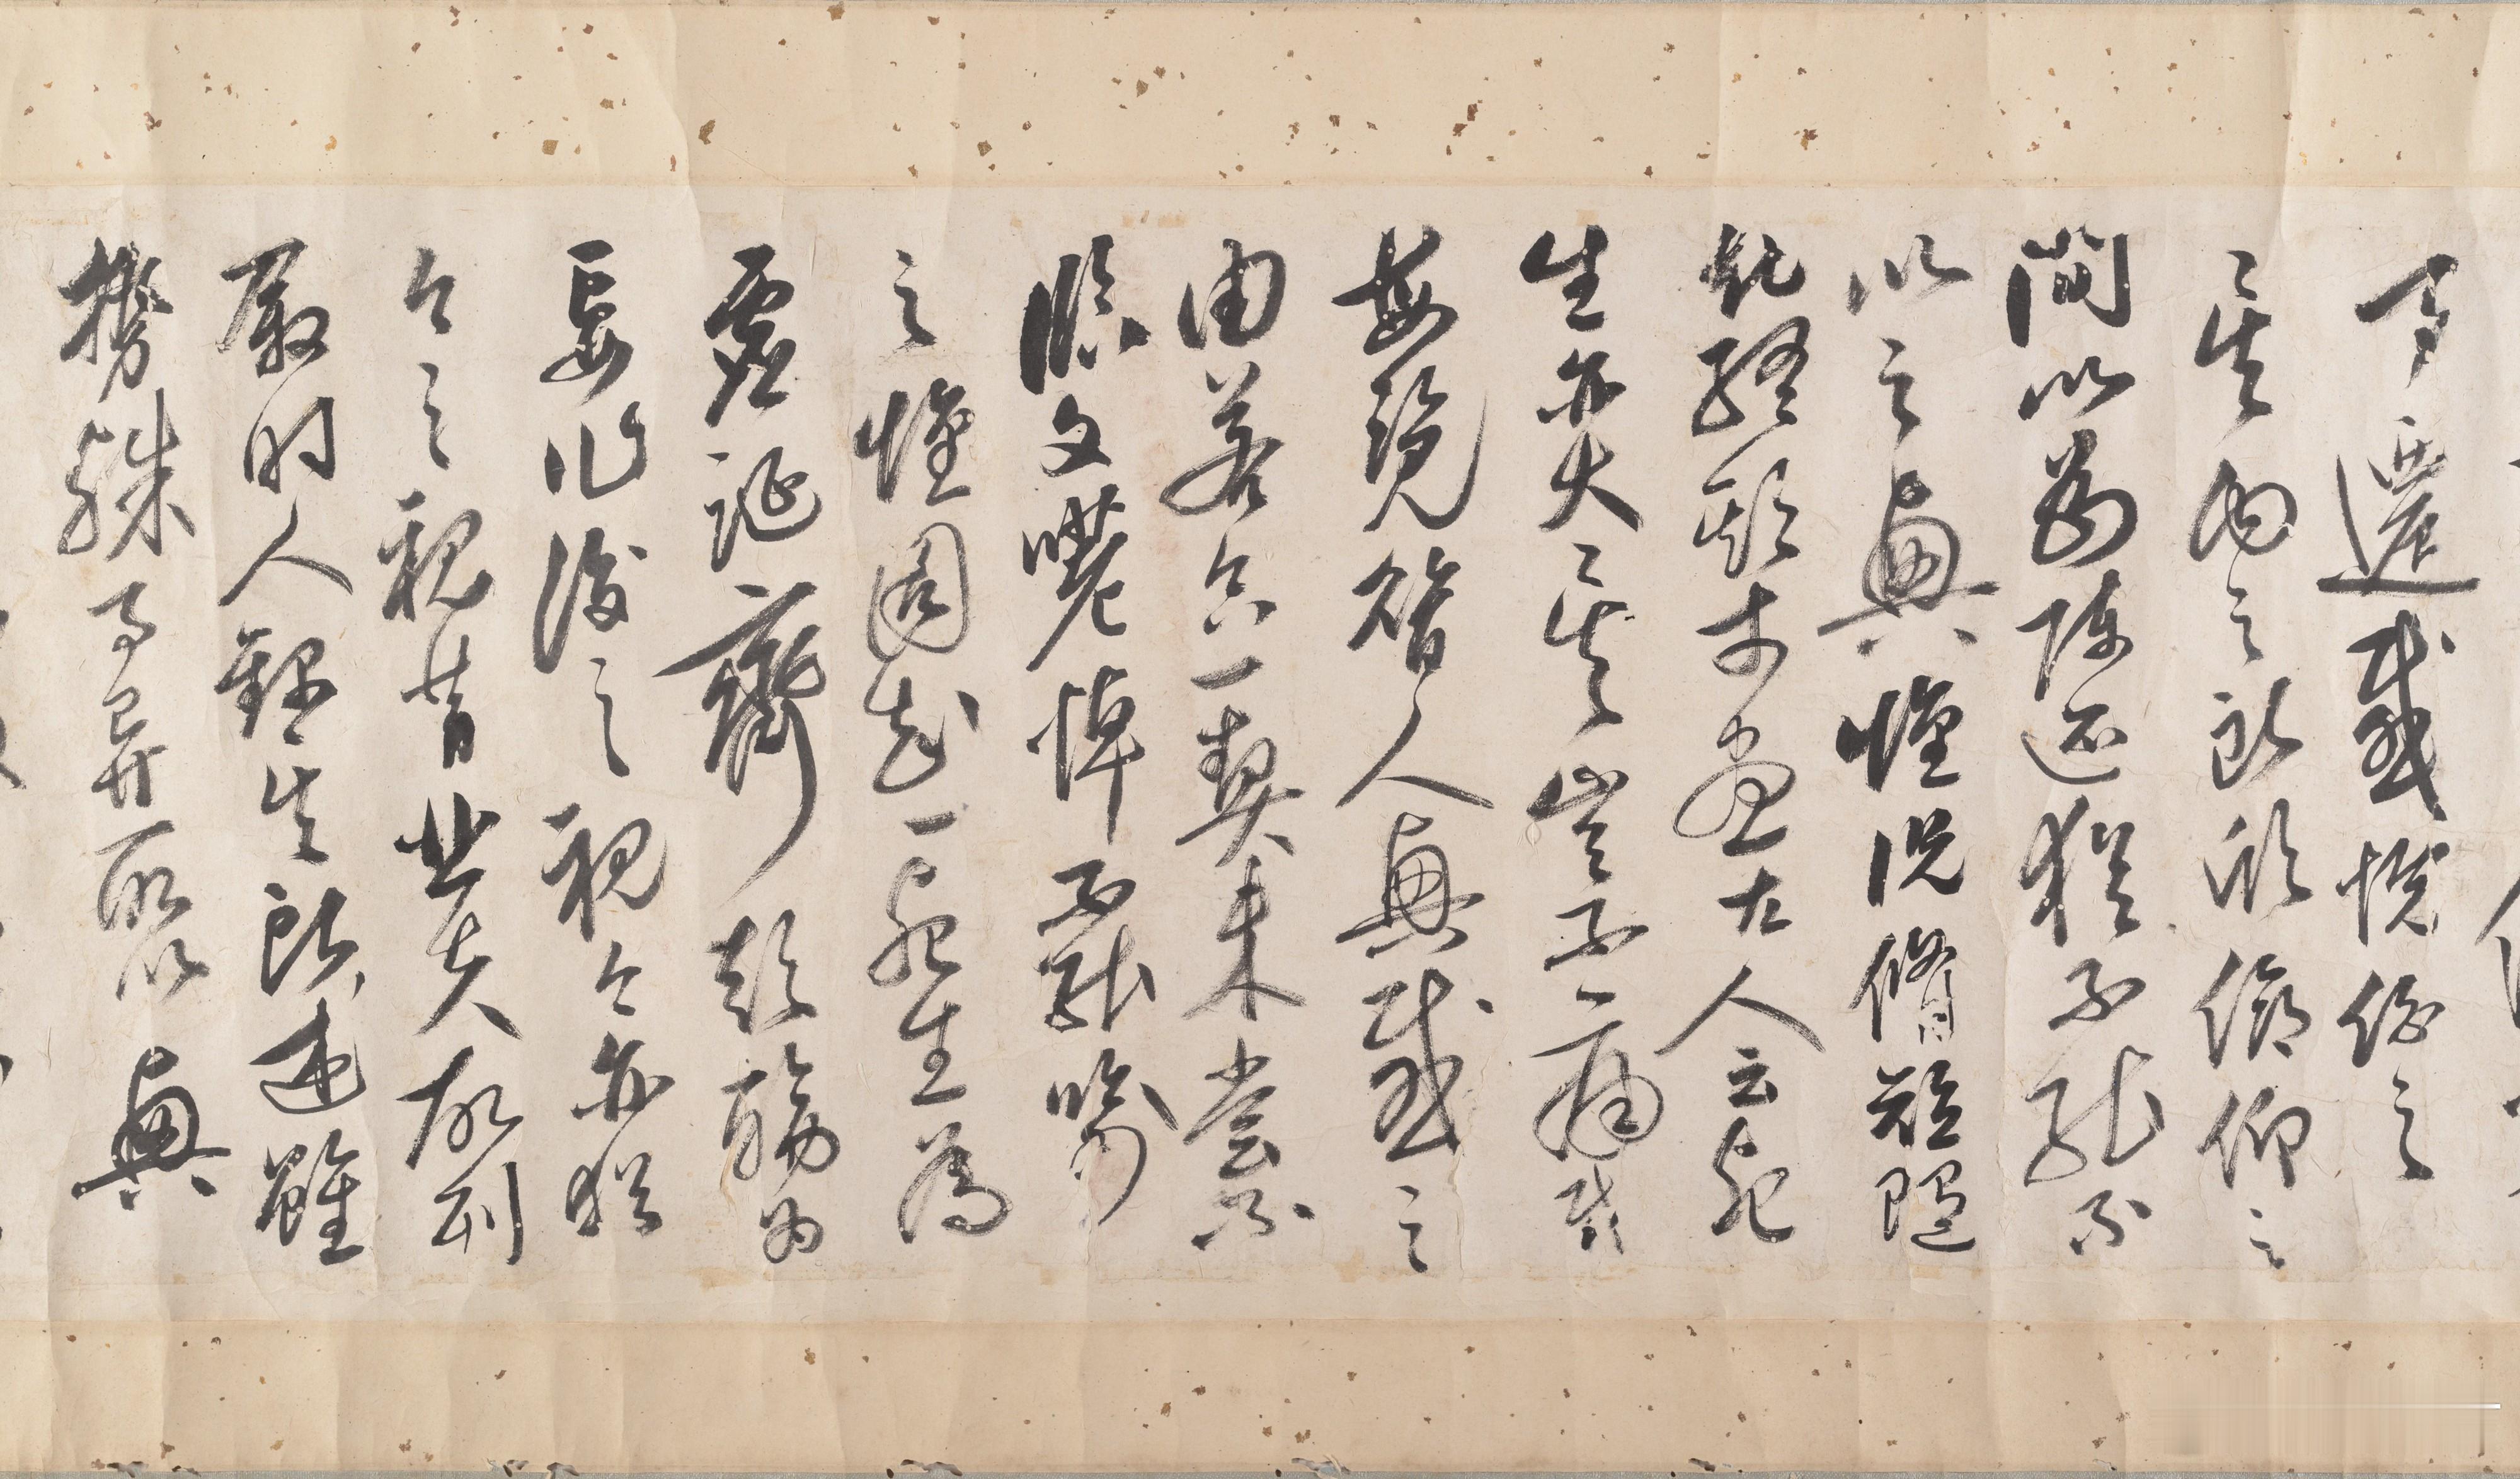 事遷感慨係之
矣向之所欣俛仰之
間以為陳迹猶不能不
以之興懷況脩短隨
化終期於盡古人云死
生亦大矣豈不痛哉
每覽昔人興感之
由若合一契未嘗不
臨文嗟悼不能喻
之懷固知一死生為
虛誕齊彭殤為
妄作後之視今亦猶
今之視昔悲夫故列
敘時人錄其所述雖
殊事異所以興